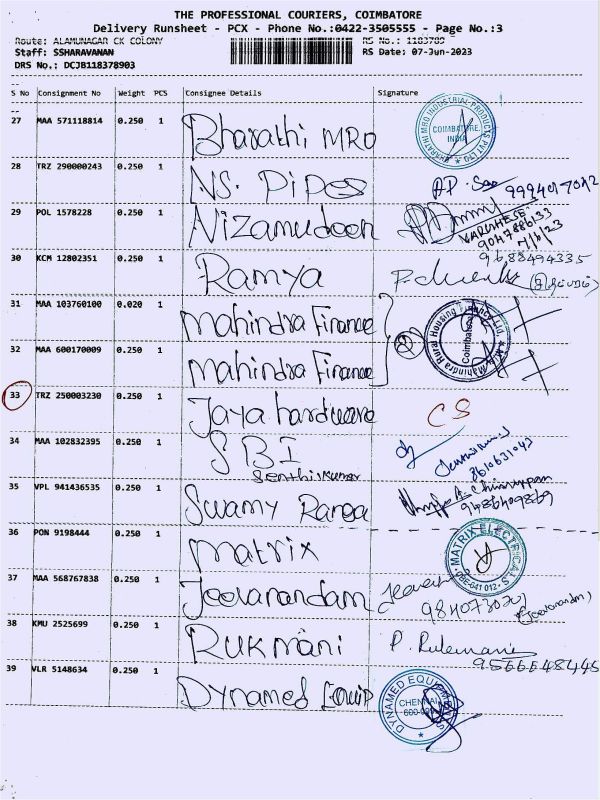 THE PROFESSIONAL COURIERS, COIMBATORE
Delivery Runsheet - PCX - Phone No.:0422-3505555 - Page No.:3
Route: ALAMUNAGAR CK COLONY RS No.: 1183789
Staff: SSHARAVANAN RS Date: 07-Jun-2023
DRS No.: DCJB118378903
S No Consignment No Weight PCS Consignee Details Signature
27 MAA 571118814 0.250 1 Bharathi MRO BHARATHI MRO INDUSTRIAL PRODUCTS PVT LTD COIMBATORE INDIA
28 TRZ 290000243 0.250 1 NS. Pipes
29 POL 1578228 0.250 1 Nizamudeen VARGHESE
9047886133
7/6/23
30 KCM 12802351 0.250 1 Ramya 9688494335
31 MAA 103760100 0.020 1 Mahindra Finance Mahindra Rural Housing Finance Ltd. Coimbatore
32 MAA 600170009 0.250 1 Mahindra Finance
33 TRZ 250003230 0.250 1 Jaya hardware CS
34 MAA 102832395 0.250 1 SBI
Senthilkumar 8610631043
35 VPL 941436535 0.250 1 Swamy Ranga 9486409869
36 PON 9198444 0.250 1 Matrix MATRIX ELECTRICALS CBE-641 012
37 MAA 568767838 0.250 1 Jeevanandam (Jeevanandam)
38 KMU 2525699 0.250 1 Rukmani P. Rukmani
9566648445
39 VLR 5148634 0.250 1 Dynamed Equip DYNAMED EQUIP CHENNAI